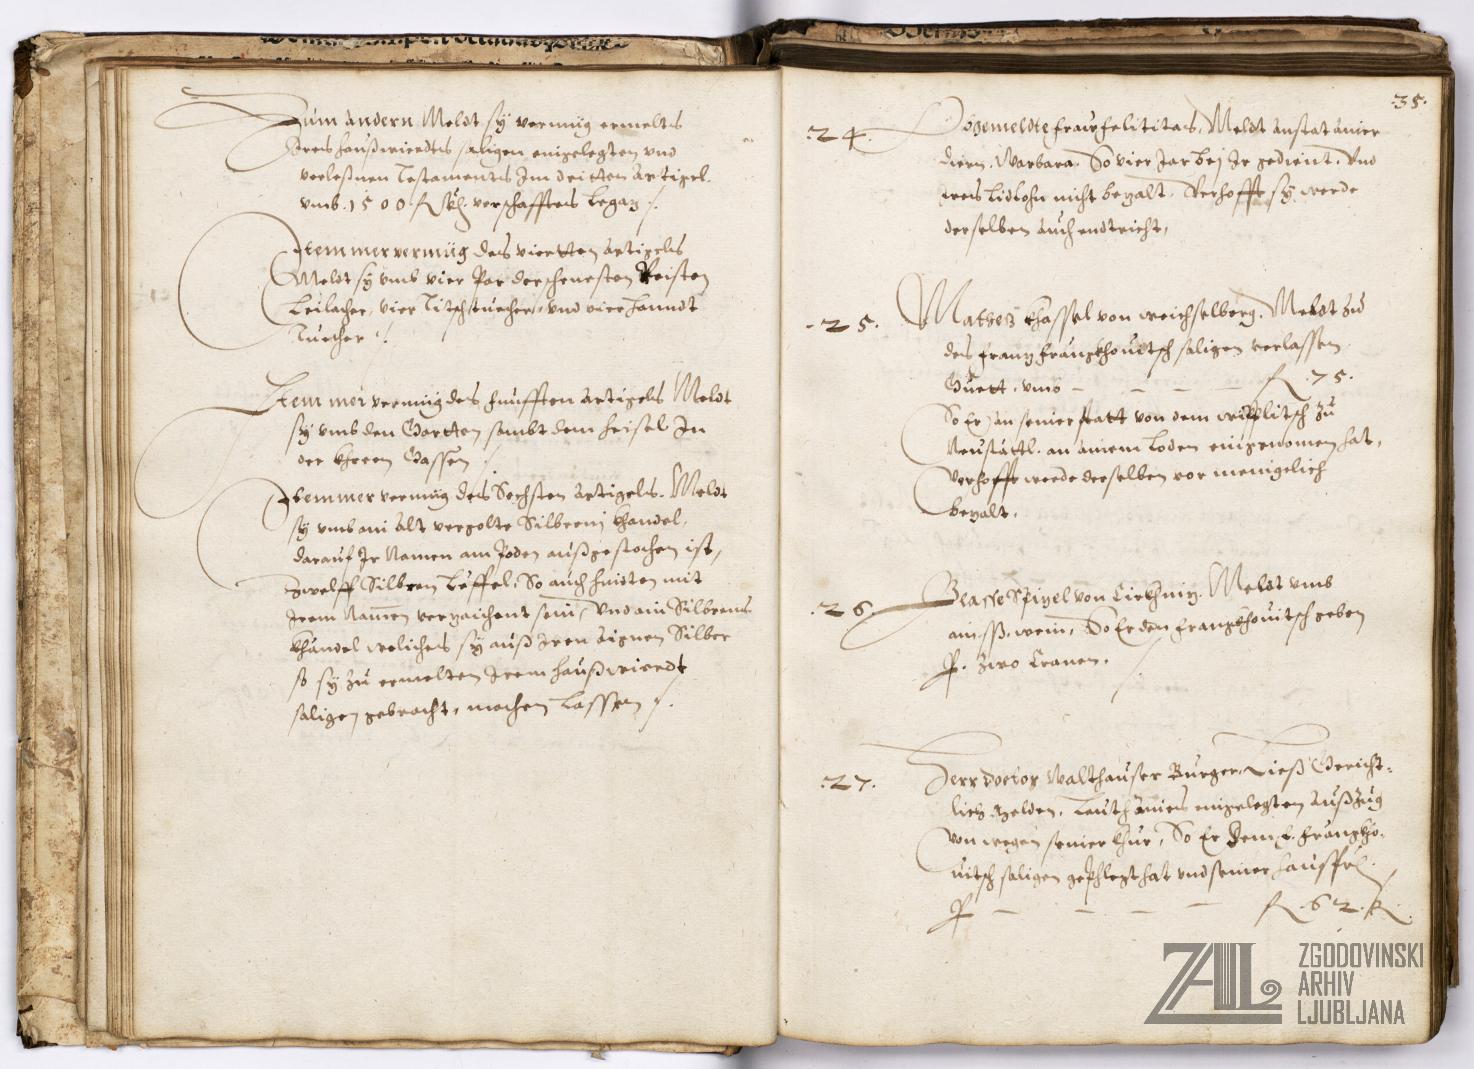 Zum andern Meldt sÿ vermüg ermelts
Ires haußwierdts saligen eingelegten vnd
verleßnen Testaments Im dritten Artigel.
vmb .1500. fl verschafftes Legaz
Item mer vermüg des viertten Artigels
Meldt sÿ vmb vier Par der schenesten Reisten
Leilacher, vier Tischtuecher, vnd vier Handt
Tuecher
Item mer vermüg des funfften Artigels Meldt
sÿ vmb den Gartten sambt dem heisel In
der Gassen
Item mer vermüg des Sechsten Artigels. Meldt
sÿ vmb ain Alt vergolte Silbrenj Khandel,
darauf Ir Namen am Poden außgestochen ist,
zwelff Silbren Leffel, So auch hinden mit
Irem Namen verzaichent sein, Vnd ain Silbrens
Khandel welliches sÿ auß Iren aignen Silber
so sÿ zu ermelten Irem haußwierdt
saligen gebracht, machen Lassen
.35.
.24. Obgemeldte fraw felicitas, Meldt anstat ainer
diern. Barbara. So vier Jar bej Ir gedient. Vnd
Ires Lidlohn nicht bezalt. Verhofft sÿ werde
derselben auch endtricht,
.25. Khassel von Weichselberg. Meldt zu
des franz frankhouitsch saligen verlassen
Guett. vmb fl .75.
So Er an seiner statt von dem zu
Neustattl. an ainem Loden eingenomen hat,
Verhofft werde derselben vor menigelich
bezalt.
.26. Blasse Spigel von Cirkhniz. Meldt vmb
ain ß. wein, So Er den frankhouitsch geben
P. zwo Cronen.
.27. Herr doctor Walthauser Burger, Liess Gericht-
lich melden. Lauth aines eingelegten Außzug
Von wegen seiner Chur, So Er dem E. frankho-
uitsch saligen gephlegt hat vnd seiner haussfr.
P fl .62. K.
ZAL ZGODOVINSKI
ARHIV
LJUBLJANA